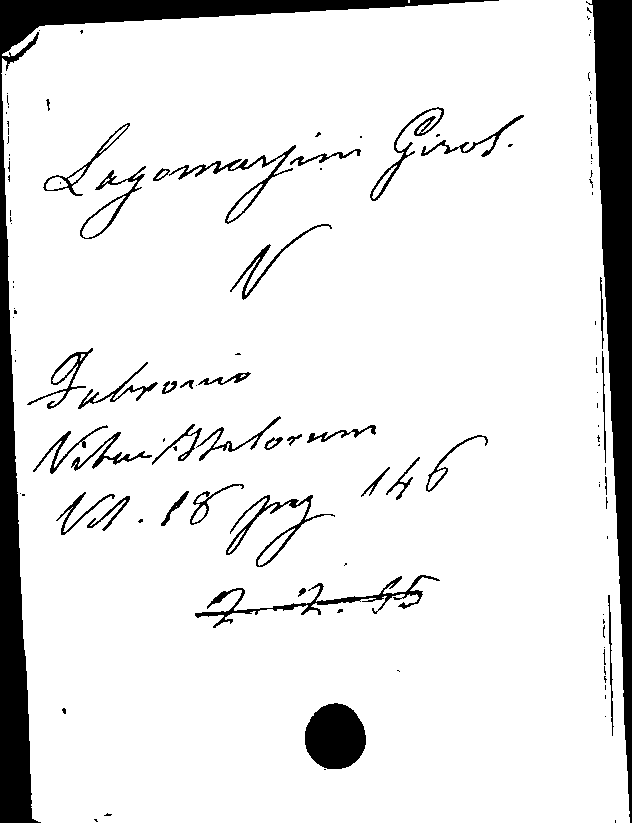 Lagomarsini Girol.
V
Fabronio
Vitae Italorum
Vol. 18 pag 146
2. 2. 55